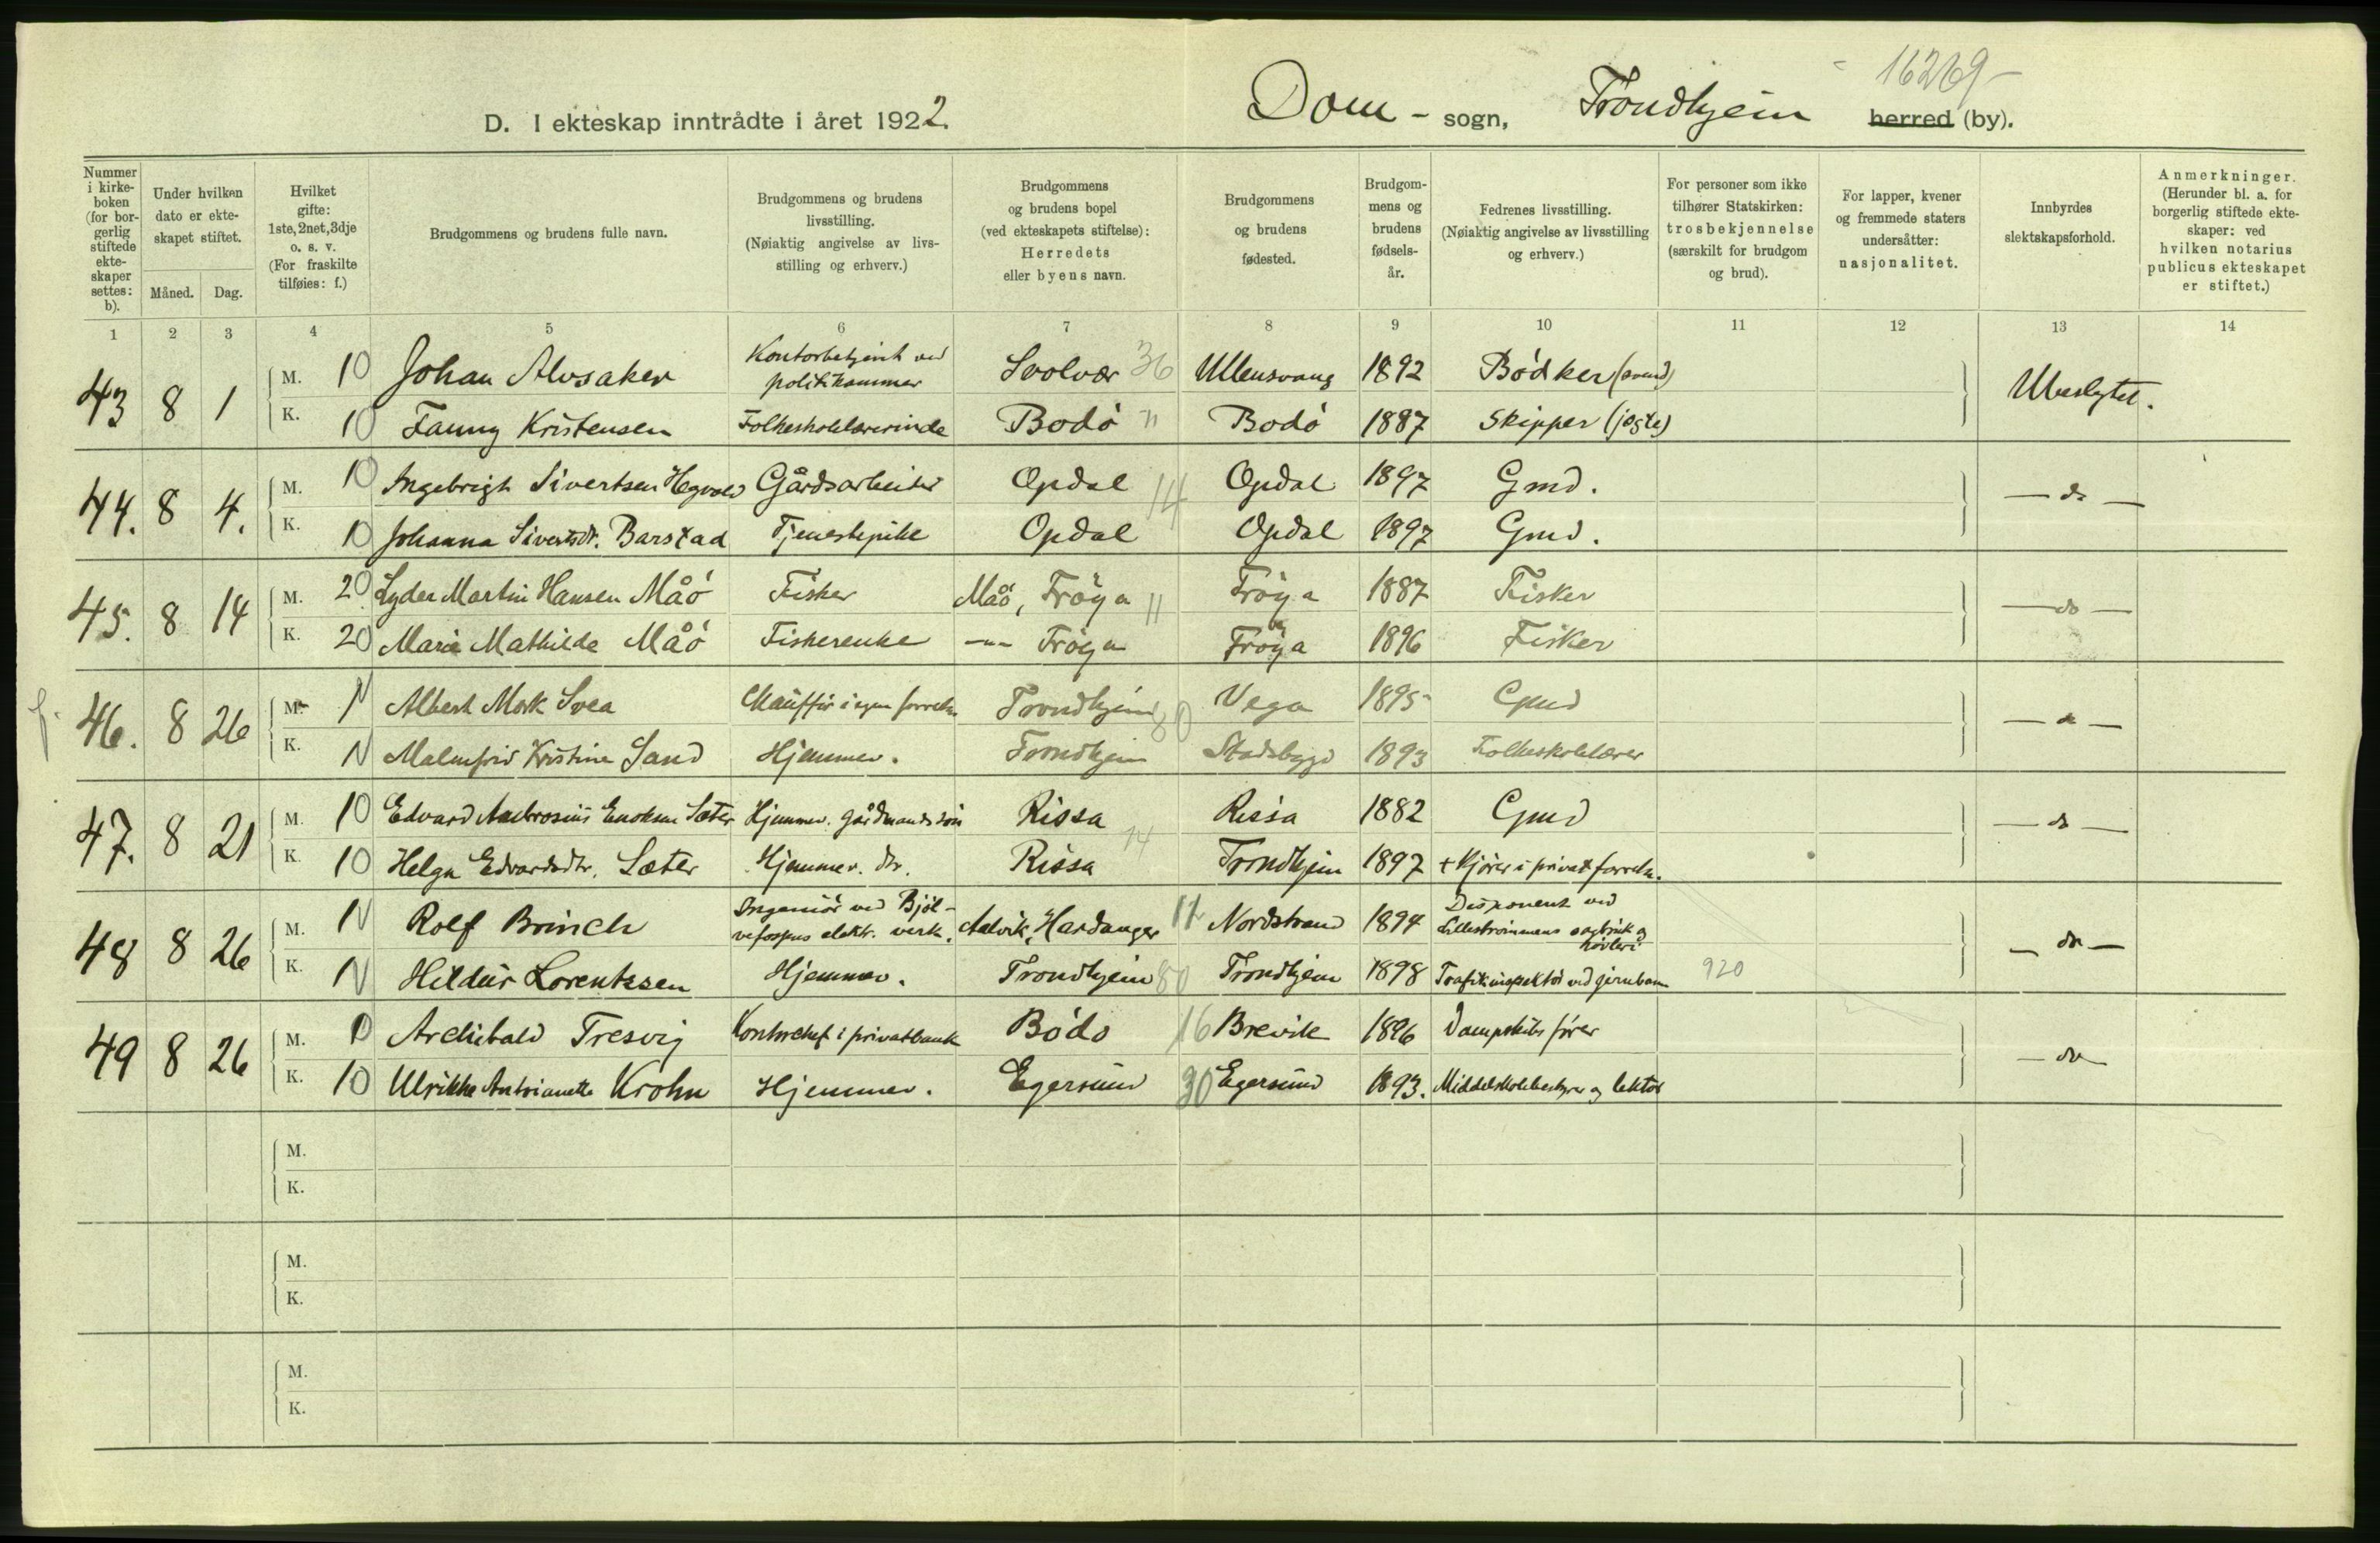 16269
D. I ekteskap inntrådte i året 1922. Dom - sogn, Trondhjem herred (by).
Nummer i kirke- boken (for bor- gerlig stiftede ekte- skaper settes: b).
Under hvilken dato er ekte- skapet stiftet.
Måned. Dag.
Hvilket gifte: 1ste, 2net, 3dje o. s. v. (For fraskilte tilføies: f.)
Brudgommens og brudens fulle navn.
Brudgommens og brudens livsstilling. (Nøiaktig angivelse av livs- stilling og erhverv.)
Brudgommens og brudens bopel (ved ekteskapets stiftelse): Herredets eller byens navn.
Brudgommens og brudens fødested.
Brudgom- mens og brudens fødsels- år.
Fedrenes livsstilling. (Nøiaktig angivelse av livsstilling og erhverv.)
For personer som ikke tilhører Statskirken: trosbekjennelse (særskilt for brudgom og brud).
For lapper, kvener og fremmede staters undersåtter: nasjonalitet.
Innbyrdes slektskapsforhold.
Anmerkninger. (Herunder bl. a. for borgerlig stiftede ekte- skaper: ved hvilken notarius publicus ekteskapet er stiftet.)
1 2 3 4 5 6 7 8 9 10 11 12 13 14
43 8 1 M. 10 Johan Alvsaker Kontorbetjent ved politikammer Svolvær 36 Ullensvang 1892 Bødker (svend) Ubeslegtet.
K. 10 Fanny Kristensen Folkeskolelærerinde Bodø 11 Bodø 1887 Skipper (jagte)
44. 8 4. M. 10 Ingebrigt Sivertsen Hegvold Gårdsarbeider Opdal 14 Opdal 1897 Gmd. — do —
K. 10 Johanna Sivertsdr. Barstad Tjenestepike Opdal Opdal 1897 Gmd.
45. 8 14 M. 20 Lyder Martin Hansen Måø Fisker Måø, Frøya 11 Frøya 1887 Fisker — do —
K. 20 Marie Mathilde Måø Fiskerenke —"— Frøya Frøya 1896 Fisker
46. 8 26 M. N Albert Mork Svea Chauffør i egen forretn. Trondhjem 80 Vega 1895 Gmd — do —
K. N Malmfrid Kristine Sand Hjemmev. Trondhjem Stadsbygd 1893 Folkeskolelærer
47. 8 21 M. 10 Edvard Ambrosius Enoksen Sæter Hjemmev. gårdmandssøn Rissa 14 Rissa 1882 Gmd — do —
K. 10 Helga Edvardsdtr. Sæter Hjemmev. dtr. Rissa Trondhjem 1897 + Kjører i privat forretn.
48 8 26 M. N Rolf Brinch Ingeniør ved Bjøl- vefossens elektr. verk. Aalvik, Hardanger 11 Nordstrand 1894 Disponent ved Lillestrømmens sagbruk og høvleri — do —
K. N Hildur Lorentzen Hjemmev. Trondhjem 80 Trondhjem 1898 Trafikinspektør ved jernbanen 920
49 8 26 M. 10 Archibald Tresvig Kontorchef i privatbank Bodø 16 Brevik 1896 Dampskibsfører — do —
K. 10 Ulrikke Antoinette Krohn Hjemmev. Egersund 30 Egersund 1893. Middelskolebestyrer og lektor
M.
K.
M.
K.
M.
K.